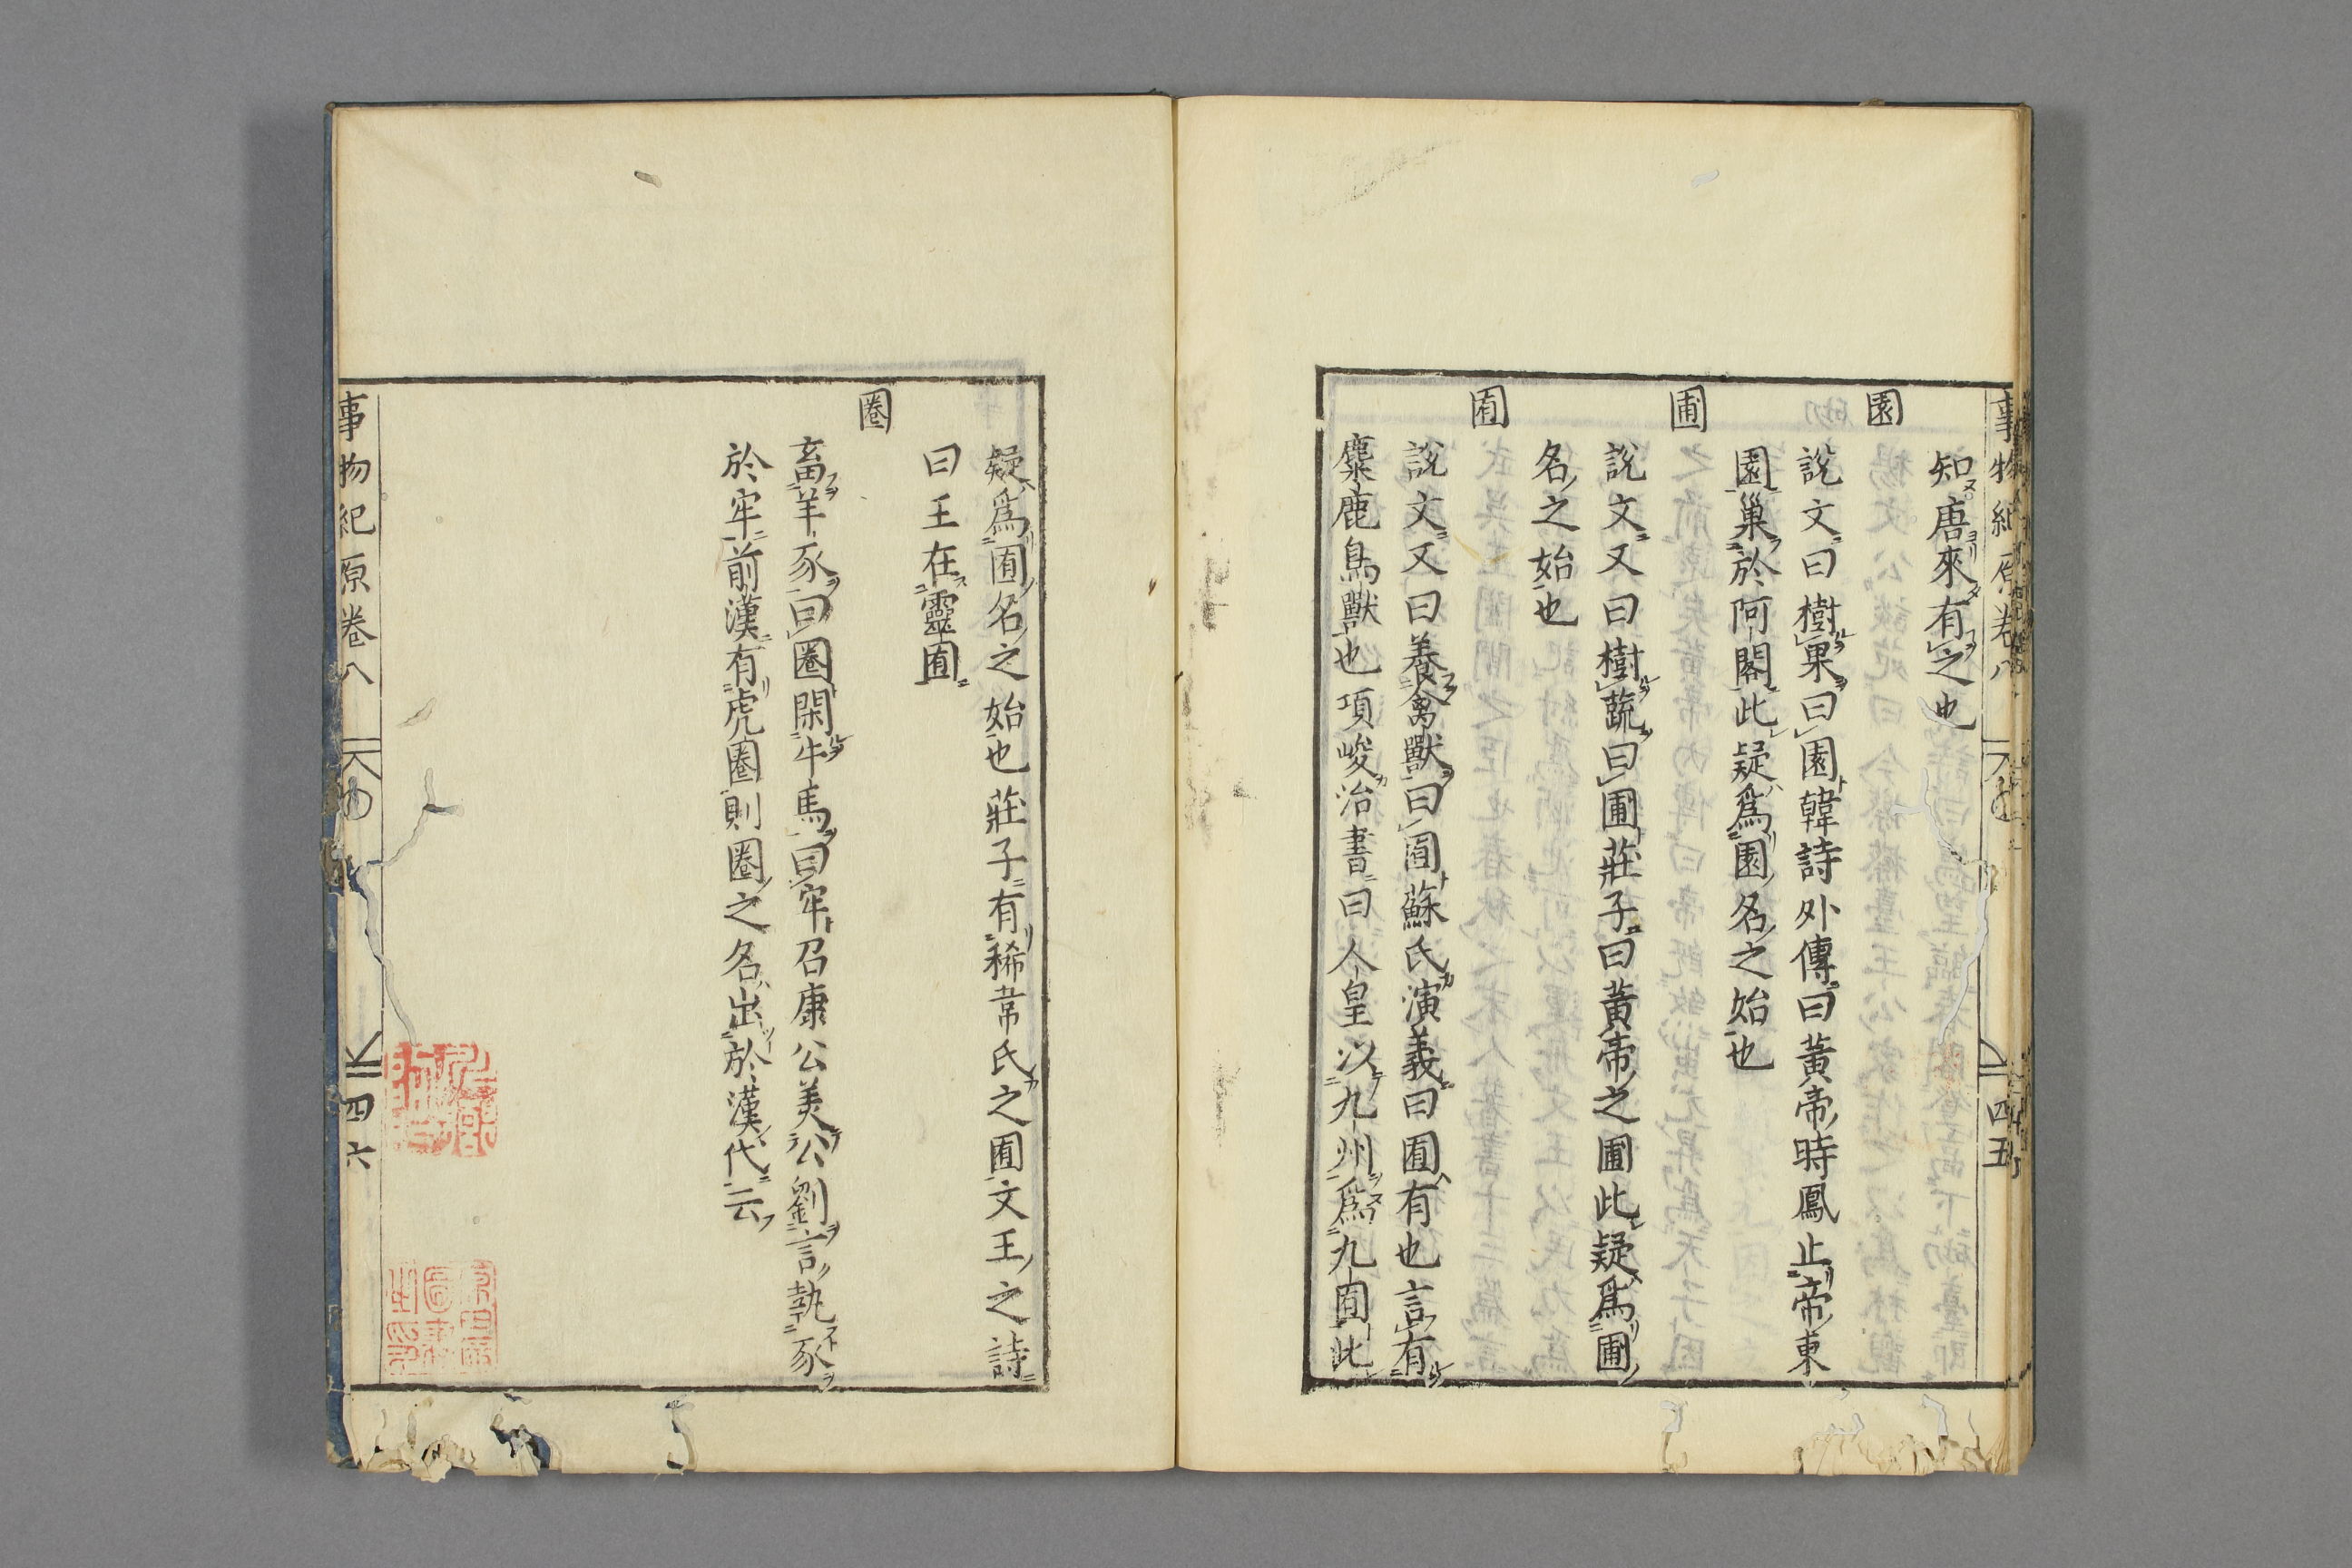 事物紀原卷八 四五
知唐來有之也
園
說文曰樹果曰園韓詩外傳曰黃帝時鳳止帝東
園巢於阿閣此疑爲園名之始也
圃
說文又曰樹蔬曰圃莊子曰黃帝之圃此疑爲圃
名之始也
囿
說文又曰養禽獸曰囿蘇氏演義曰囿有也言有
麋鹿鳥獸也項峻治書曰人皇以九州爲九囿此
疑爲囿名之始也莊子有稀韋氏之囿文王之詩
曰王在靈囿
圈
畜羊豕曰圈閑牛馬曰牢召康公美公劉言執豕
於牢前漢有虎圈則圈之名出於漢代云
事物紀原卷八 四六